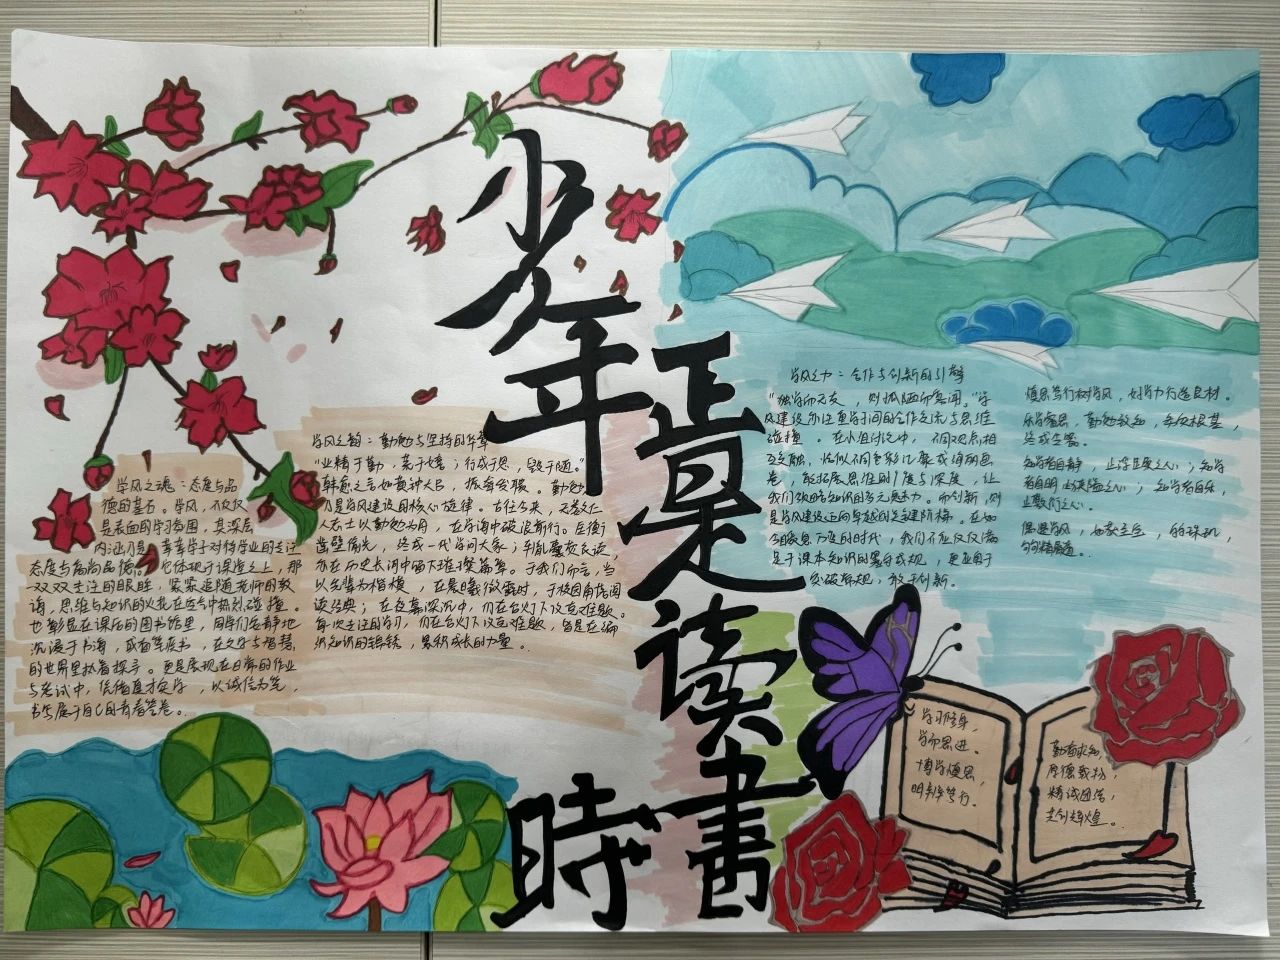 少年
正是读书
時
学风之魂：态度与品
德的基石。学风，不仅仅
是表面的学习氛围，其深层
内涵乃是莘莘学子对待学业的专注
态度与高尚品德。它体现于课堂之上，那
一双双专注的眼眸，紧紧追随老师的教
诲，思维与知识的火花在空中热烈碰撞。
也彰显在课后的图书馆里，同学们安静地
沉浸于书海，或奋笔疾书，在文字与智慧
的世界里执着探寻。更是展现在日常的作业
与考试中，依循真才实学，以诚信为笔，
书写属于自己的青春答卷。
学风之韵：勤勉与坚持的华章
“业精于勤，荒于嬉；行成于思，毁于随。”
韩愈之言如黄钟大吕，振聋发聩。勤勉
乃是学风建设的核心旋律。古往今来，无数仁
人志士以勤勉为舟，在学海中破浪前行。匡衡
凿壁偷光，终成一代学问大家；车胤囊萤夜读，
亦在历史长河中留下璀璨篇章。于我们而言，当
以先辈为楷模，在晨曦微露时，于校园角落阅
读经典；在夜幕深沉中，仍在台灯下攻克难题。
每次专注的学习，仍在台灯下攻克难题，皆是在编
织知识的锦绣，累积成长的力量。
学风之力：合作与创新的引擎
“独学而无友，则孤陋而寡闻。”学
风建设亦注重学子间的合作交流与思维
碰撞。在小组讨论中，不同观点相
互交融，恰似不同色彩汇聚成绚丽画
卷，能拓展思维的广度与深度，让
我们领略知识的多元魅力。而创新，则
是学风建设迈向卓越的关键阶梯。在如
今瞬息万变的时代，我们不应仅仅满
足于课本知识的墨守成规，更应勇于
突破常规，敢于创新。
慎思笃行树学风，好学力行造良材。
乐学善思，勤勉致知，
知学者自静，止浮躁之心；知学
者自明，
学习修身，
学而思进。
博学慎思，
明辨笃行。
勤奋求知，
厚德载物，
精诚团结，
共创辉煌。